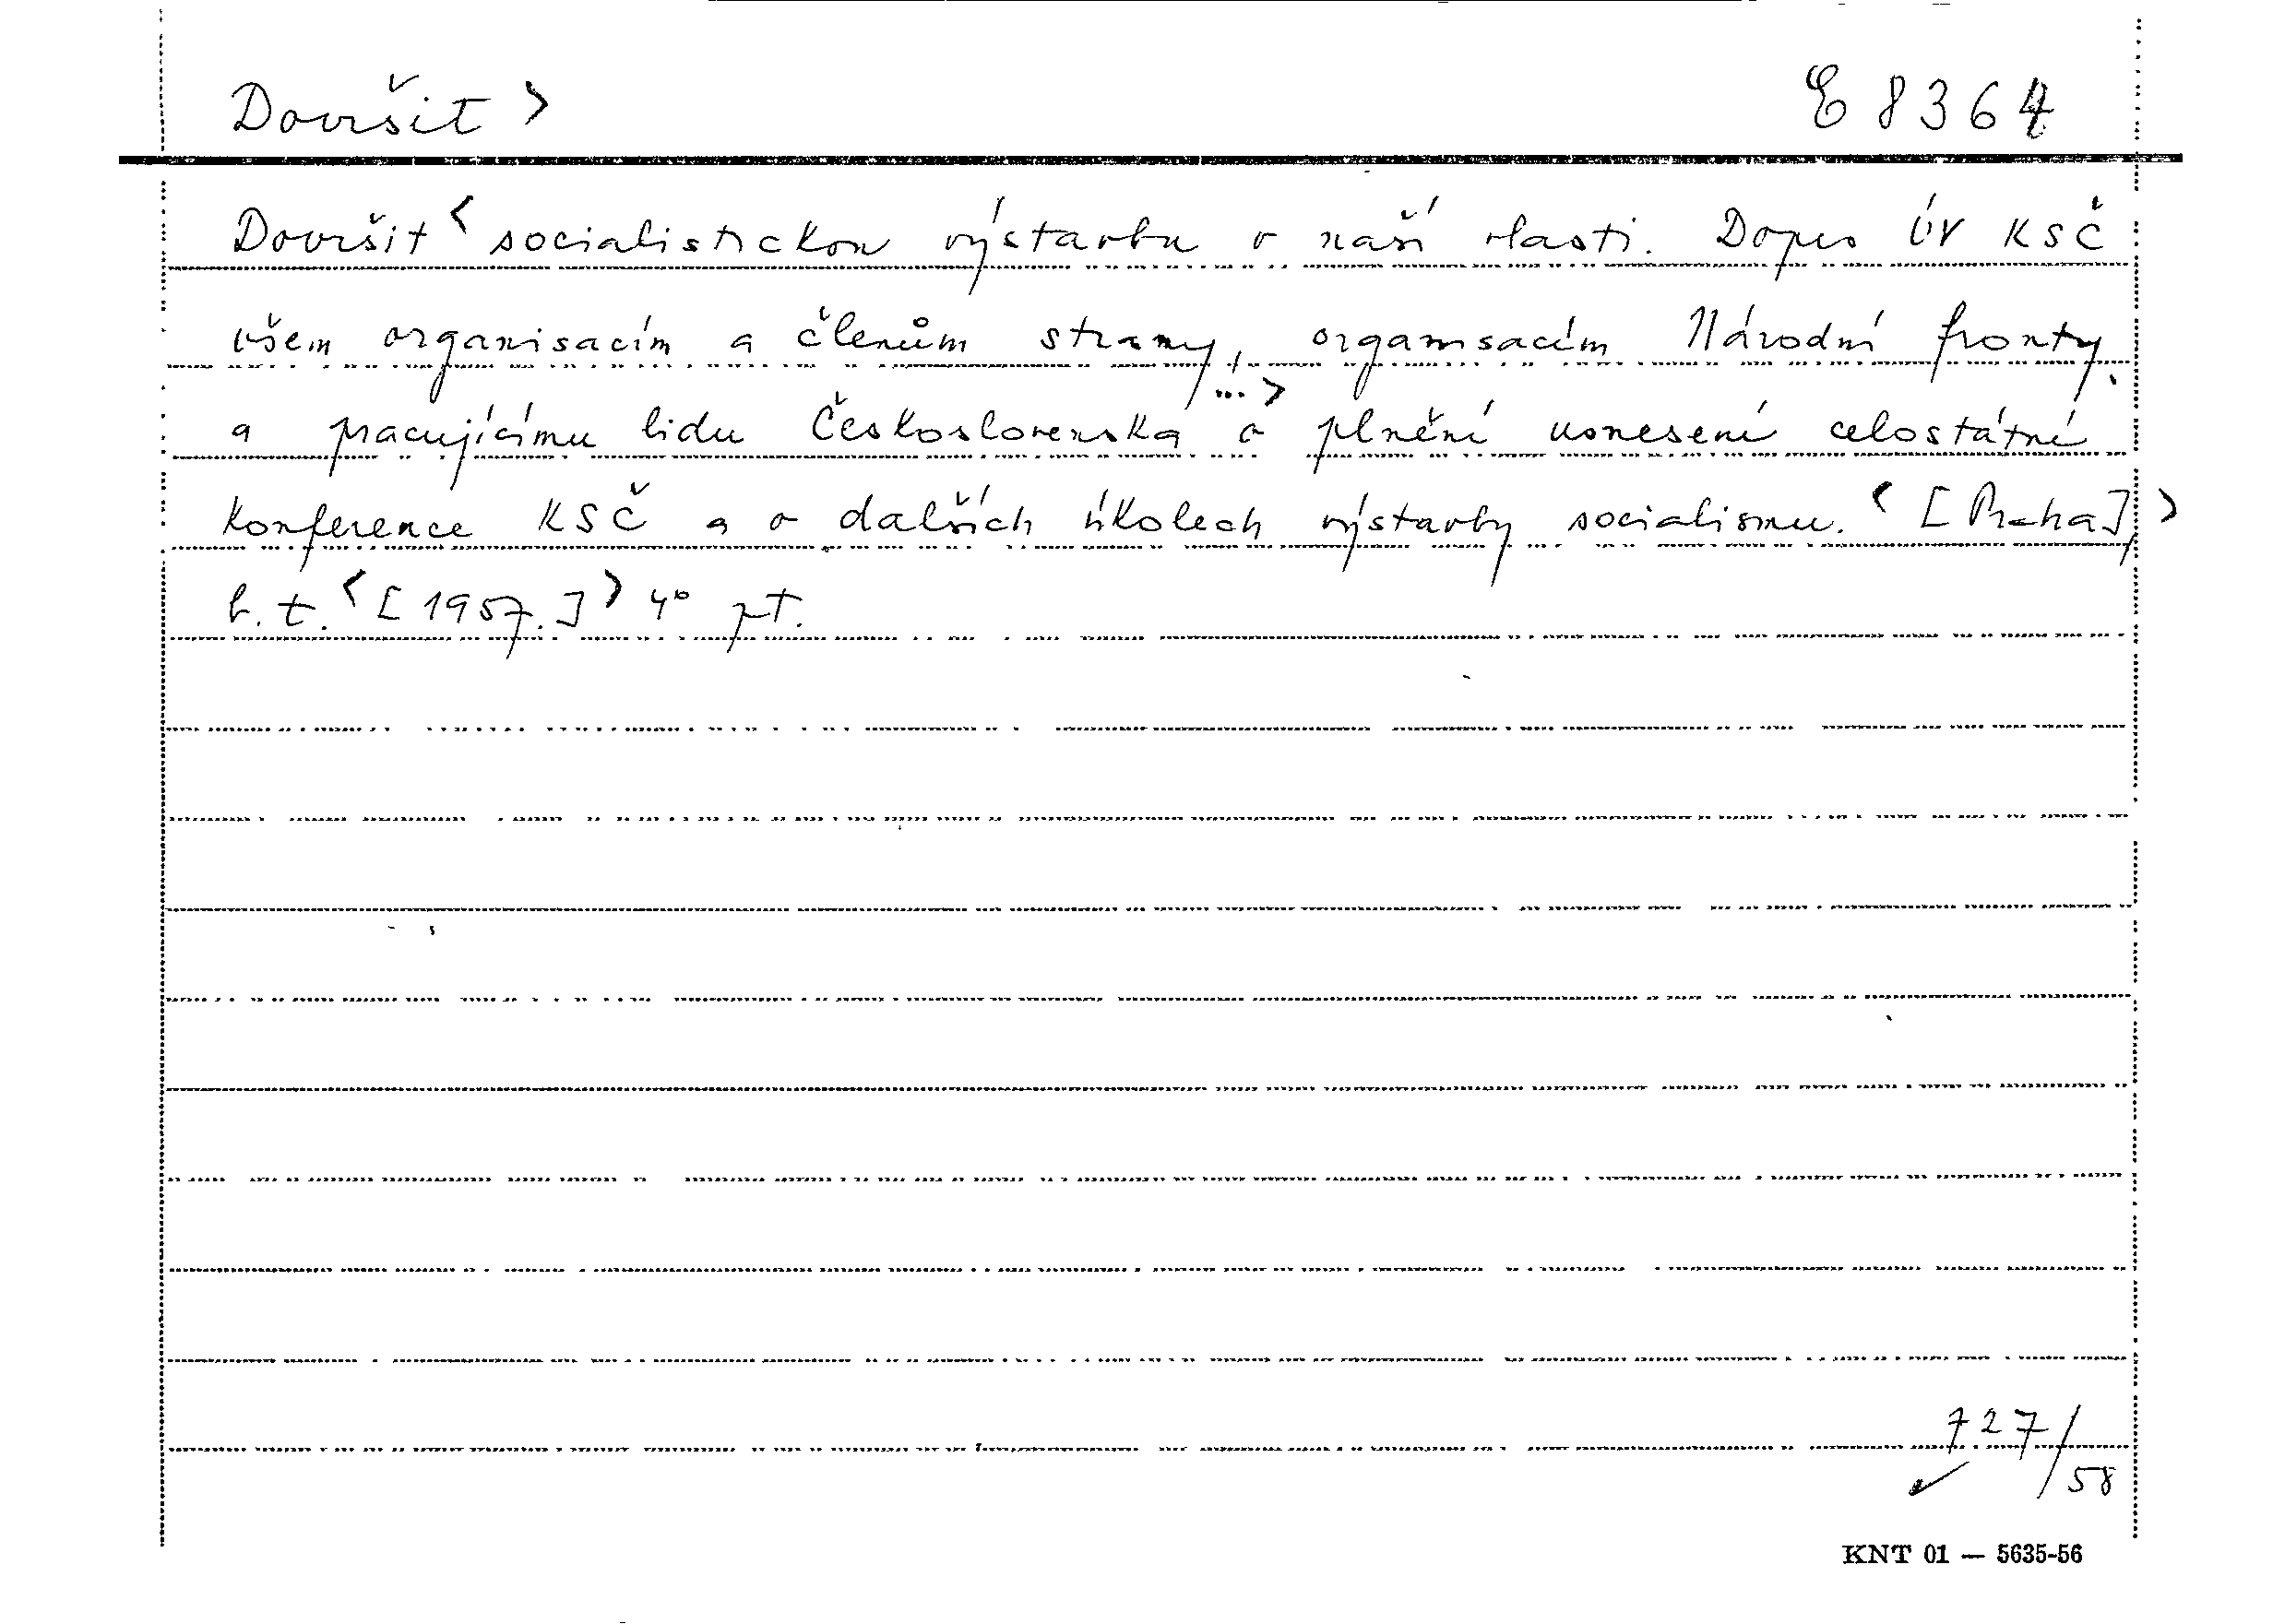 Dovršit >
E 8364
Dovršit < socialistickou výstavbu v naší vlasti. Dopis ÚV KSČ
všem organisacím a členům strany, organisacím Národní fronty
... >
a pracujícímu lidu Československa o plnění usnesení celostátní
konference KSČ a o dalších úkolech výstavby socialismu. < [Praha], >
b. t. < [1957.] > 4° pt.
727/58
KNT 01 — 5635-56